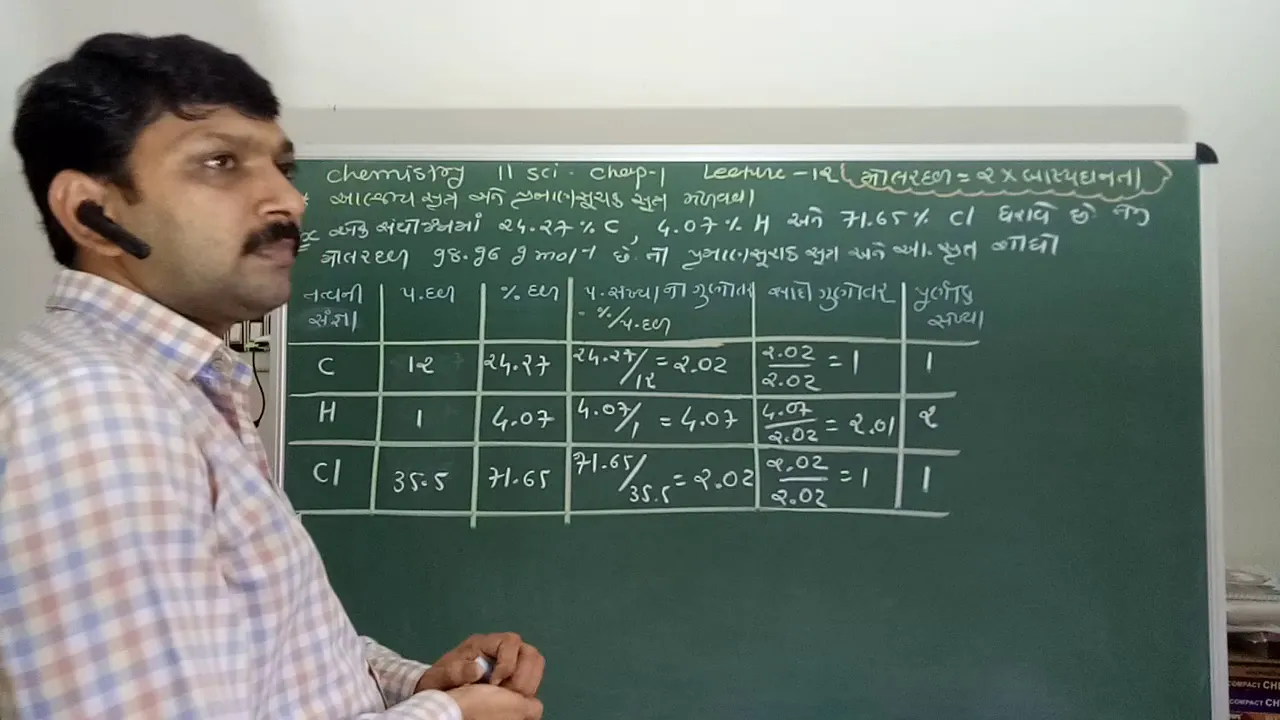 Chemistry 11 sci. Chap-1 Lecture-1૨ મોલરદળ = ૨ × બાષ્પઘનતા
આણ્વીય સૂત્ર અને પ્રમાણસૂચક સૂત્ર મેળવવા
એક સંયોજનમાં ૨4.૨7 % C, 4.07 % H અને 71.65 % Cl ધરાવે છે તેનુ
મોલરદળ ૧૪.૧૬ g mol-1 છે. તો પ્રમાણસૂચક સૂત્ર અને આ. સૂત્ર શોધો
તત્વની સંજ્ઞા પ. દળ % દળ પ. સંખ્યાનો ગુણોતર = %/પ. દળ સાદો ગુણોતર પૂર્ણાંક સંખ્યા
C 1૨ ૨4.૨7 ૨4.૨7/1૨ = ૨.0૨ ૨.0૨/૨.0૨ = 1 1
H 1 4.07 4.07/1 = 4.07 4.07/૨.0૨ = ૨.01 ૨
Cl 35.5 71.65 71.65/35.5 = ૨.0૨ ૨.0૨/૨.0૨ = 1 1
COMPACT CH
COMPACT CH